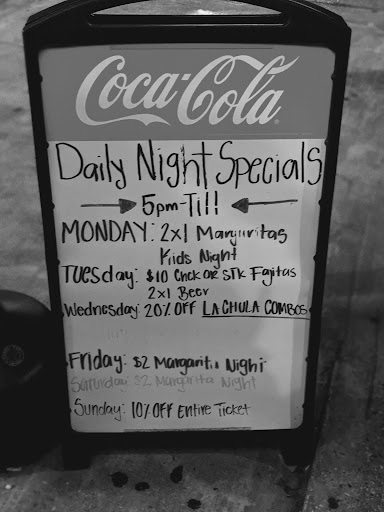 Coca-Cola
Daily Night Specials
5pm-Till
MONDAY: 2x1 Margaritas
Kids Night
Tuesday: $10 Chck OR STK Fajitas
2x1 Beer
Wednesday: 20% OFF LA CHULA COMBOS
Friday: $2 Margarita Night
Saturday: $2 Margarita Night
Sunday: 10% OFF Entire Ticket